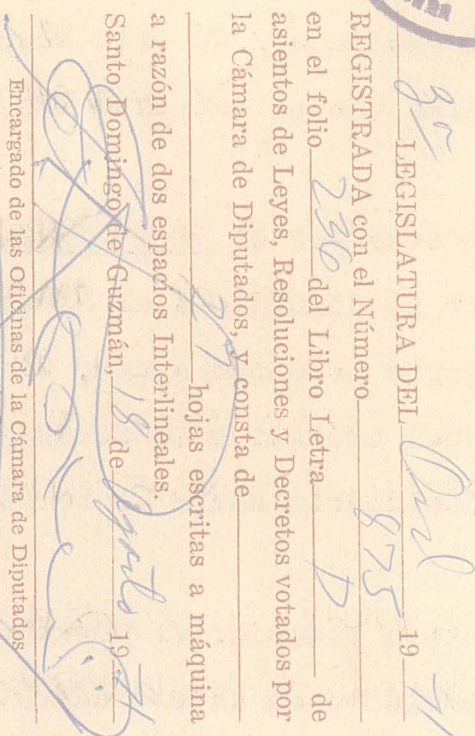 LEGISLATURA DEL 1971
REGISTRADA con el Número 875
en el folio 236 del Libro Letra D de
asientos de Leyes, Resoluciones y Decretos votados por
la Cámara de Diputados, y consta de
hojas escritas a máquina
a razón de dos espacios Interlineales.
Santo Domingo de Guzmán, 18 de Agosto 1971
Encargado de las Oficinas de la Cámara de Diputados